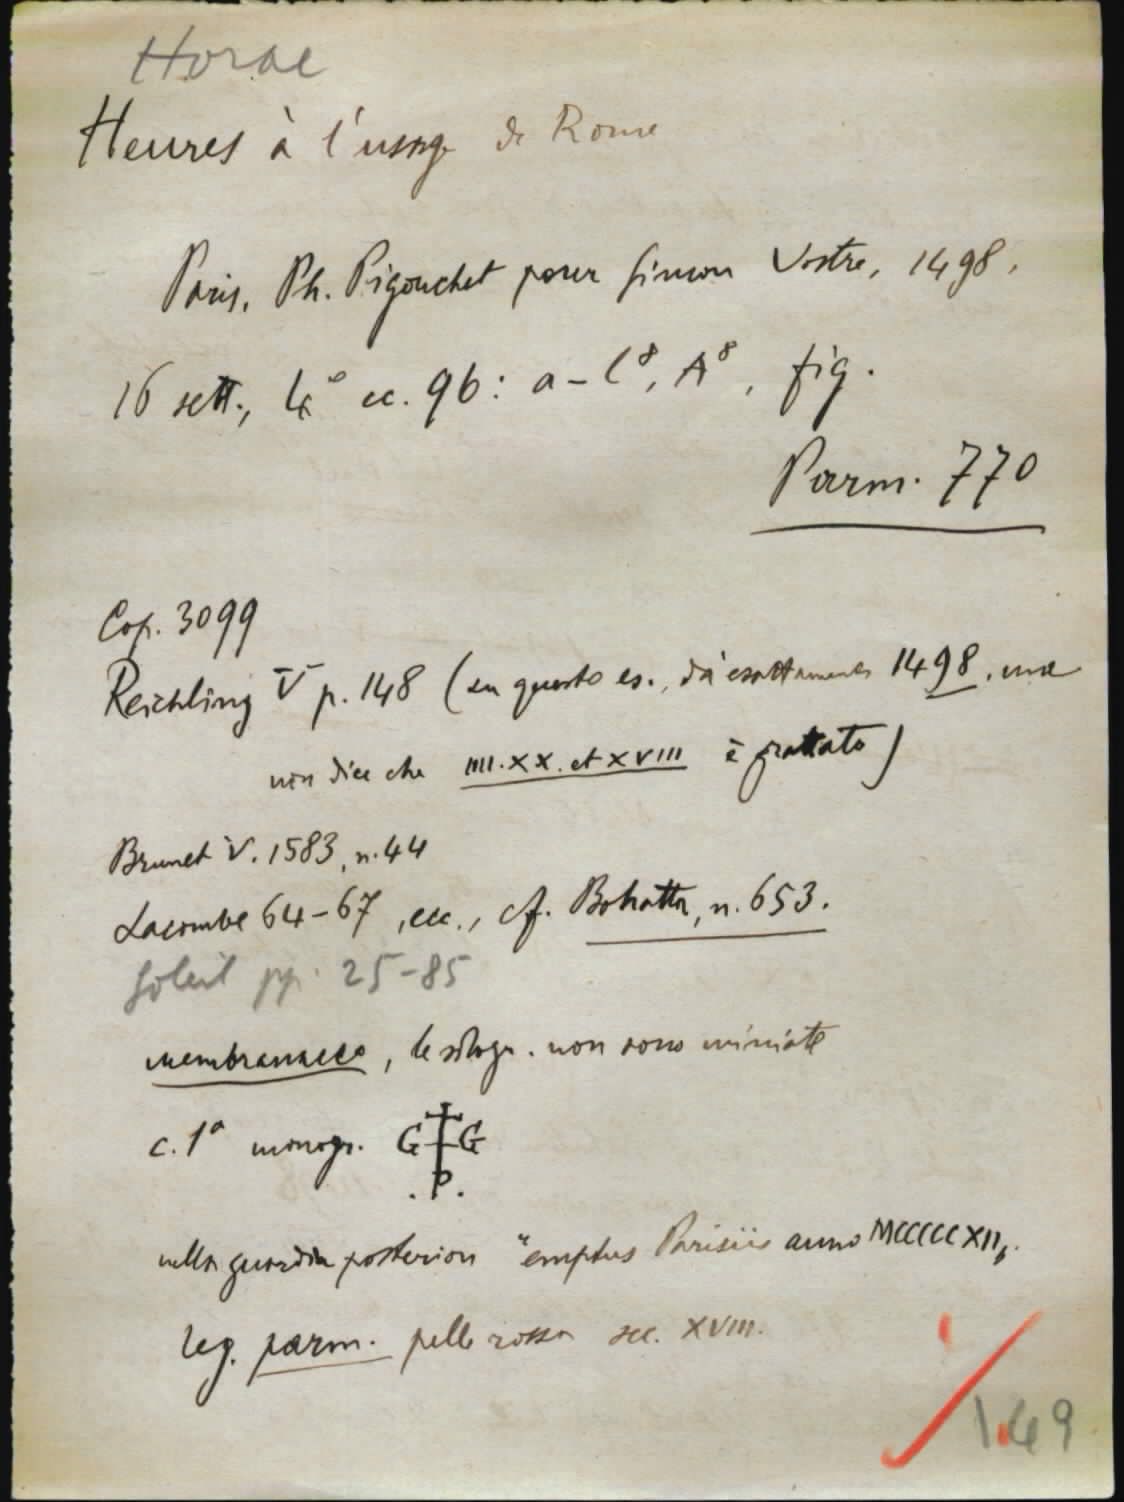 Horae
Heures à l'usage de Rome
Paris, Ph. Pigouchet pour Simon Vostre, 1498,
16 sett., 4° cc. 96: a-l⁸, A⁸, fig.
Parm. 770
Cop. 3099
Reichling V p. 148 (su questo es., dà esattamente 1498, ma
non dice che IIII.XX. et XVIII è grattato)
Brunet V. 1583, n. 44
Lacombe 64-67, ecc., cf. Bohatta, n. 653.
Soleil pp. 25-85
membranaceo, le silogr. non sono miniate
c. 1ª monogr. G G
. P .
nella guardia posteriore "emptus Parisiis anno MCCCCCXII,,
leg. parm. pelle rossa sec. XVIII.
149